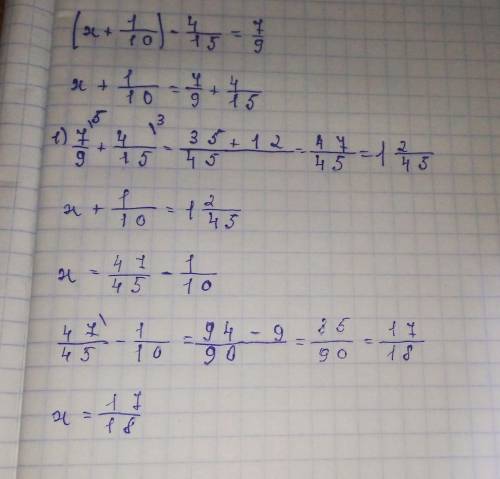 (x + 1/10) - 4/15 = 7/9
x + 1/10 = 7/9 + 4/15
1) 7/9 \5 + 4/15 \3 = 35 + 12/45 = 47/45 = 1 2/45
x + 1/10 = 1 2/45
x = 47/45 - 1/10
47/45 \ - 1/10 = 94 - 9/90 = 85/90 = 17/18
x = 17/18